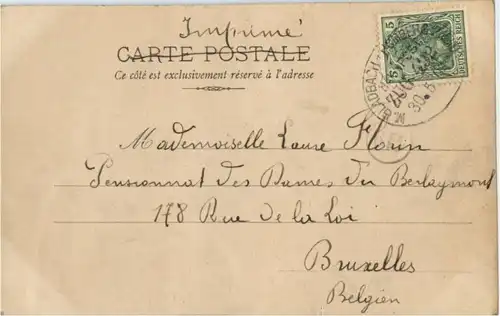 Imprimé
CARTE POSTALE
Ce côté est exclusivement réservé à l'adresse
5 5
DEUTSCHES REICH
M. GLADBACH
ZUG
30.5
Mademoiselle Laure Florin
Pensionnat des Dames du Berlaymont
178 Rue de la Loi
Bruxelles
Belgien